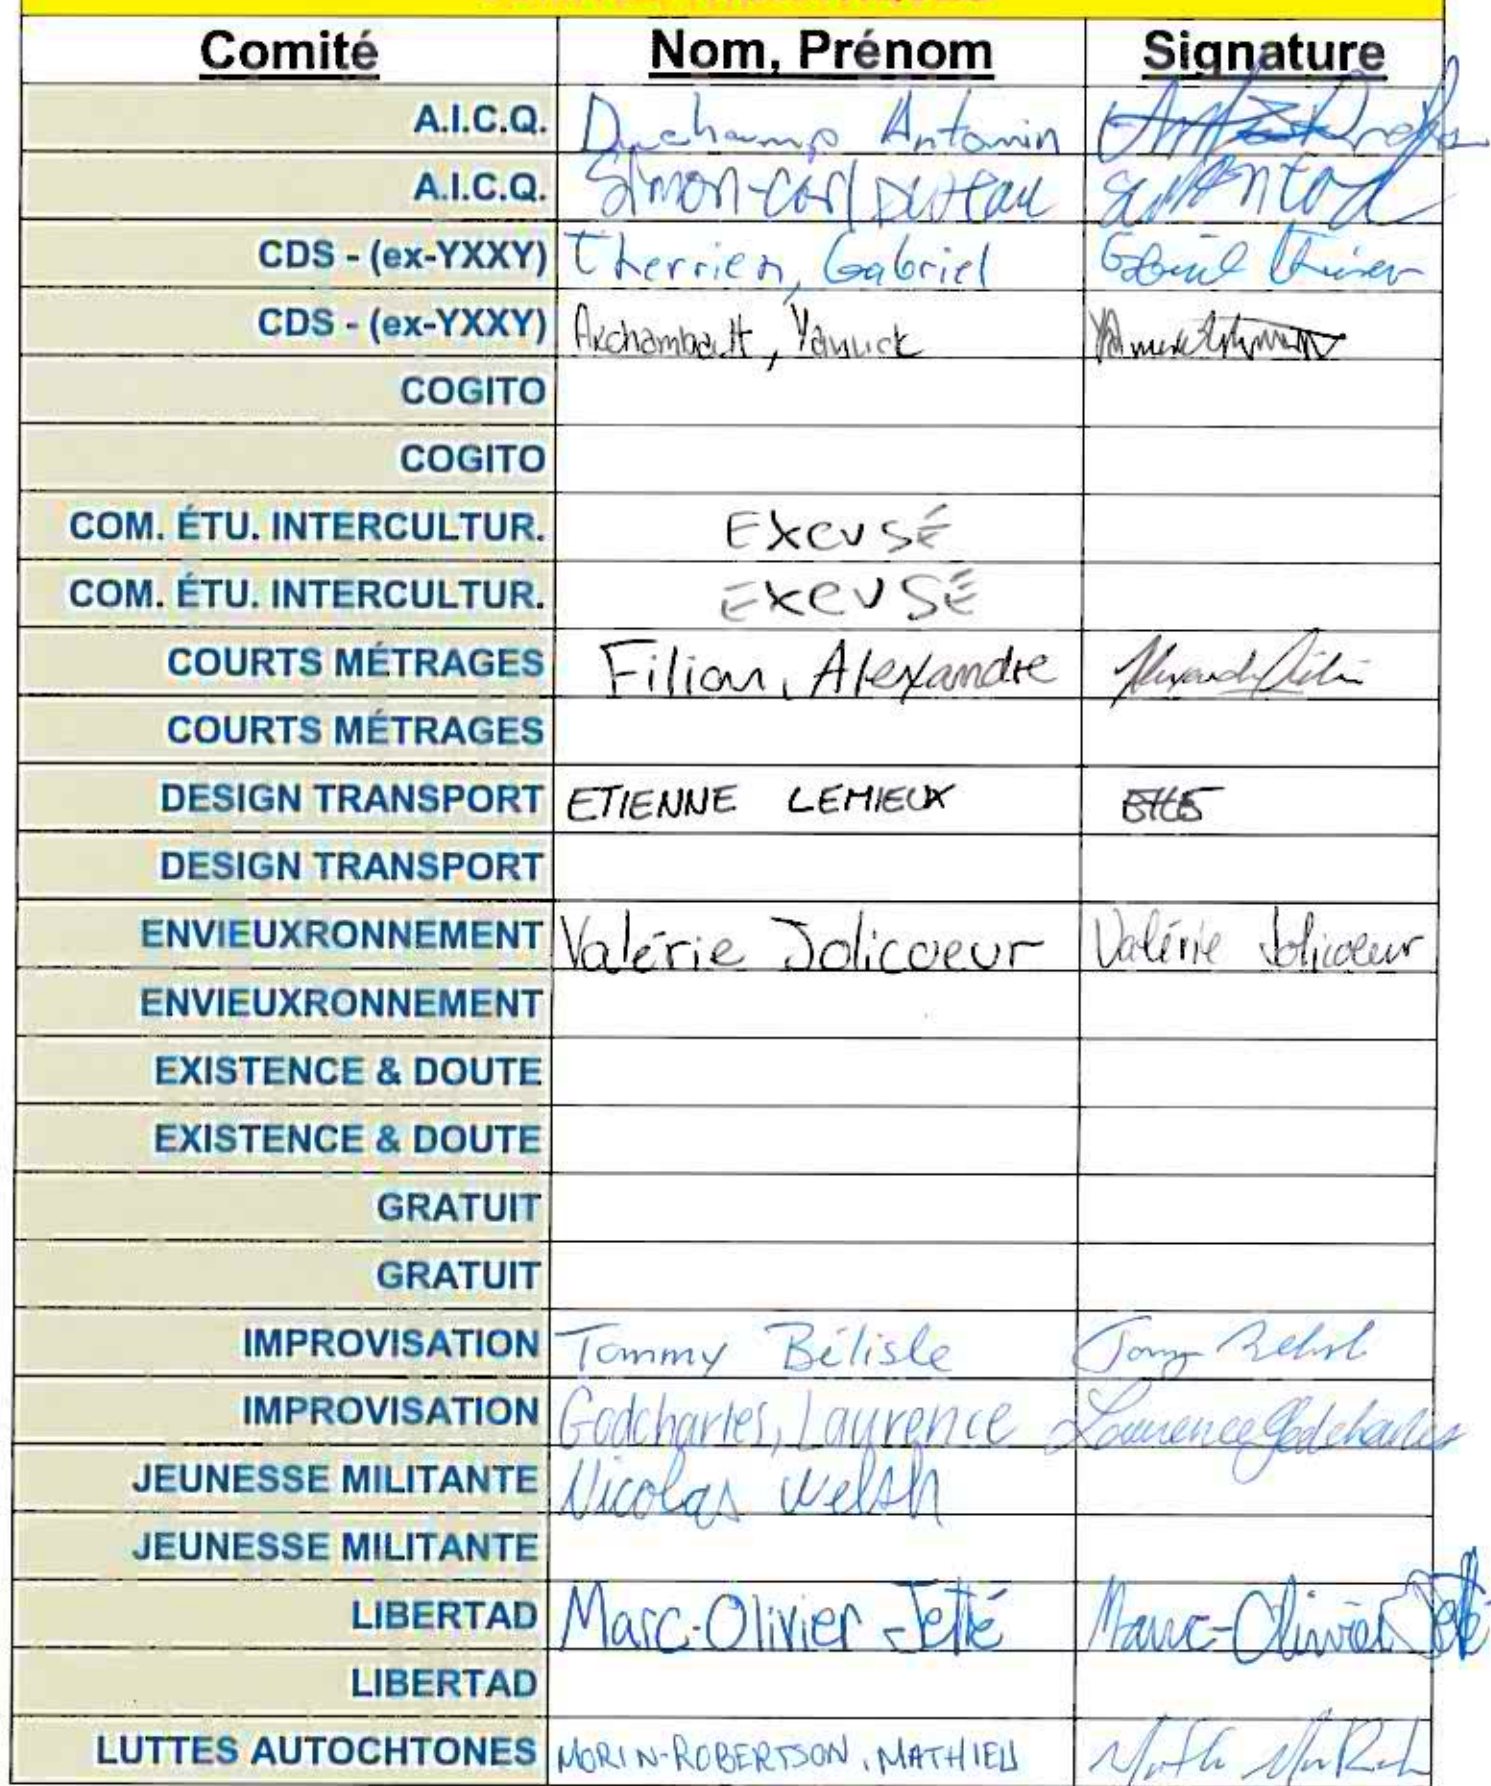 Comité Nom, Prénom Signature
A.I.C.Q. Duchamp Antonin
A.I.C.Q. Simon-Carl
CDS - (ex-YXXY) Therrien, Gabriel Gabriel Therrien
CDS - (ex-YXXY) Archambault, Yannick
COGITO
COGITO
COM. ÉTU. INTERCULTUR. EXCUSÉ
COM. ÉTU. INTERCULTUR. EXCUSÉ
COURTS MÉTRAGES Filion, Alexandre
COURTS MÉTRAGES
DESIGN TRANSPORT ETIENNE LEMIEUX
DESIGN TRANSPORT
ENVIEUXRONNEMENT Valérie Jolicoeur Valérie Jolicoeur
ENVIEUXRONNEMENT
EXISTENCE & DOUTE
EXISTENCE & DOUTE
GRATUIT
GRATUIT
IMPROVISATION Tommy Bélisle
IMPROVISATION Godcharles, Laurence Laurence Godcharles
JEUNESSE MILITANTE Nicolas Welsh
JEUNESSE MILITANTE
LIBERTAD Marc-Olivier Jetté Marc-Olivier Jetté
LIBERTAD
LUTTES AUTOCHTONES MORIN-ROBERTSON, MATHIEU